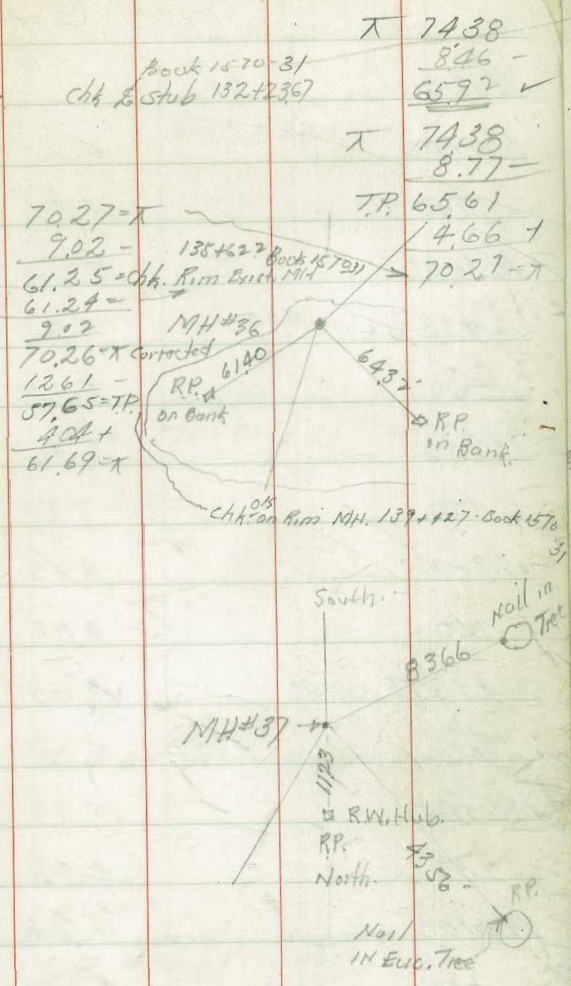 π 74.38
8.46 -
65.92 ✓
Book 1570-31
Chk ℄ Stub 132+23.67
π 74.38
8.77 -
T.P. 65.61
4.66 +
70.27 = π
70.27 = π
9.02 -
61.25 = Chk. Rim Exist. MH
138+62.2 Book 1570-31
61.24 =
9.02
70.26 = π Corrected
12.61 -
57.65 = T.P.
4.04 +
61.69 = π
MH #36
61.40
R.P.
on Bank
64.32
R.P.
on Bank.
Chk on Rim MH. 139+427 - Book 1570
31
South.
Nail in
Tree
83.66
MH #37
11.23
R.W. Hub.
R.P.
North.
43.56
R.P.
Nail
IN Euc. Tree